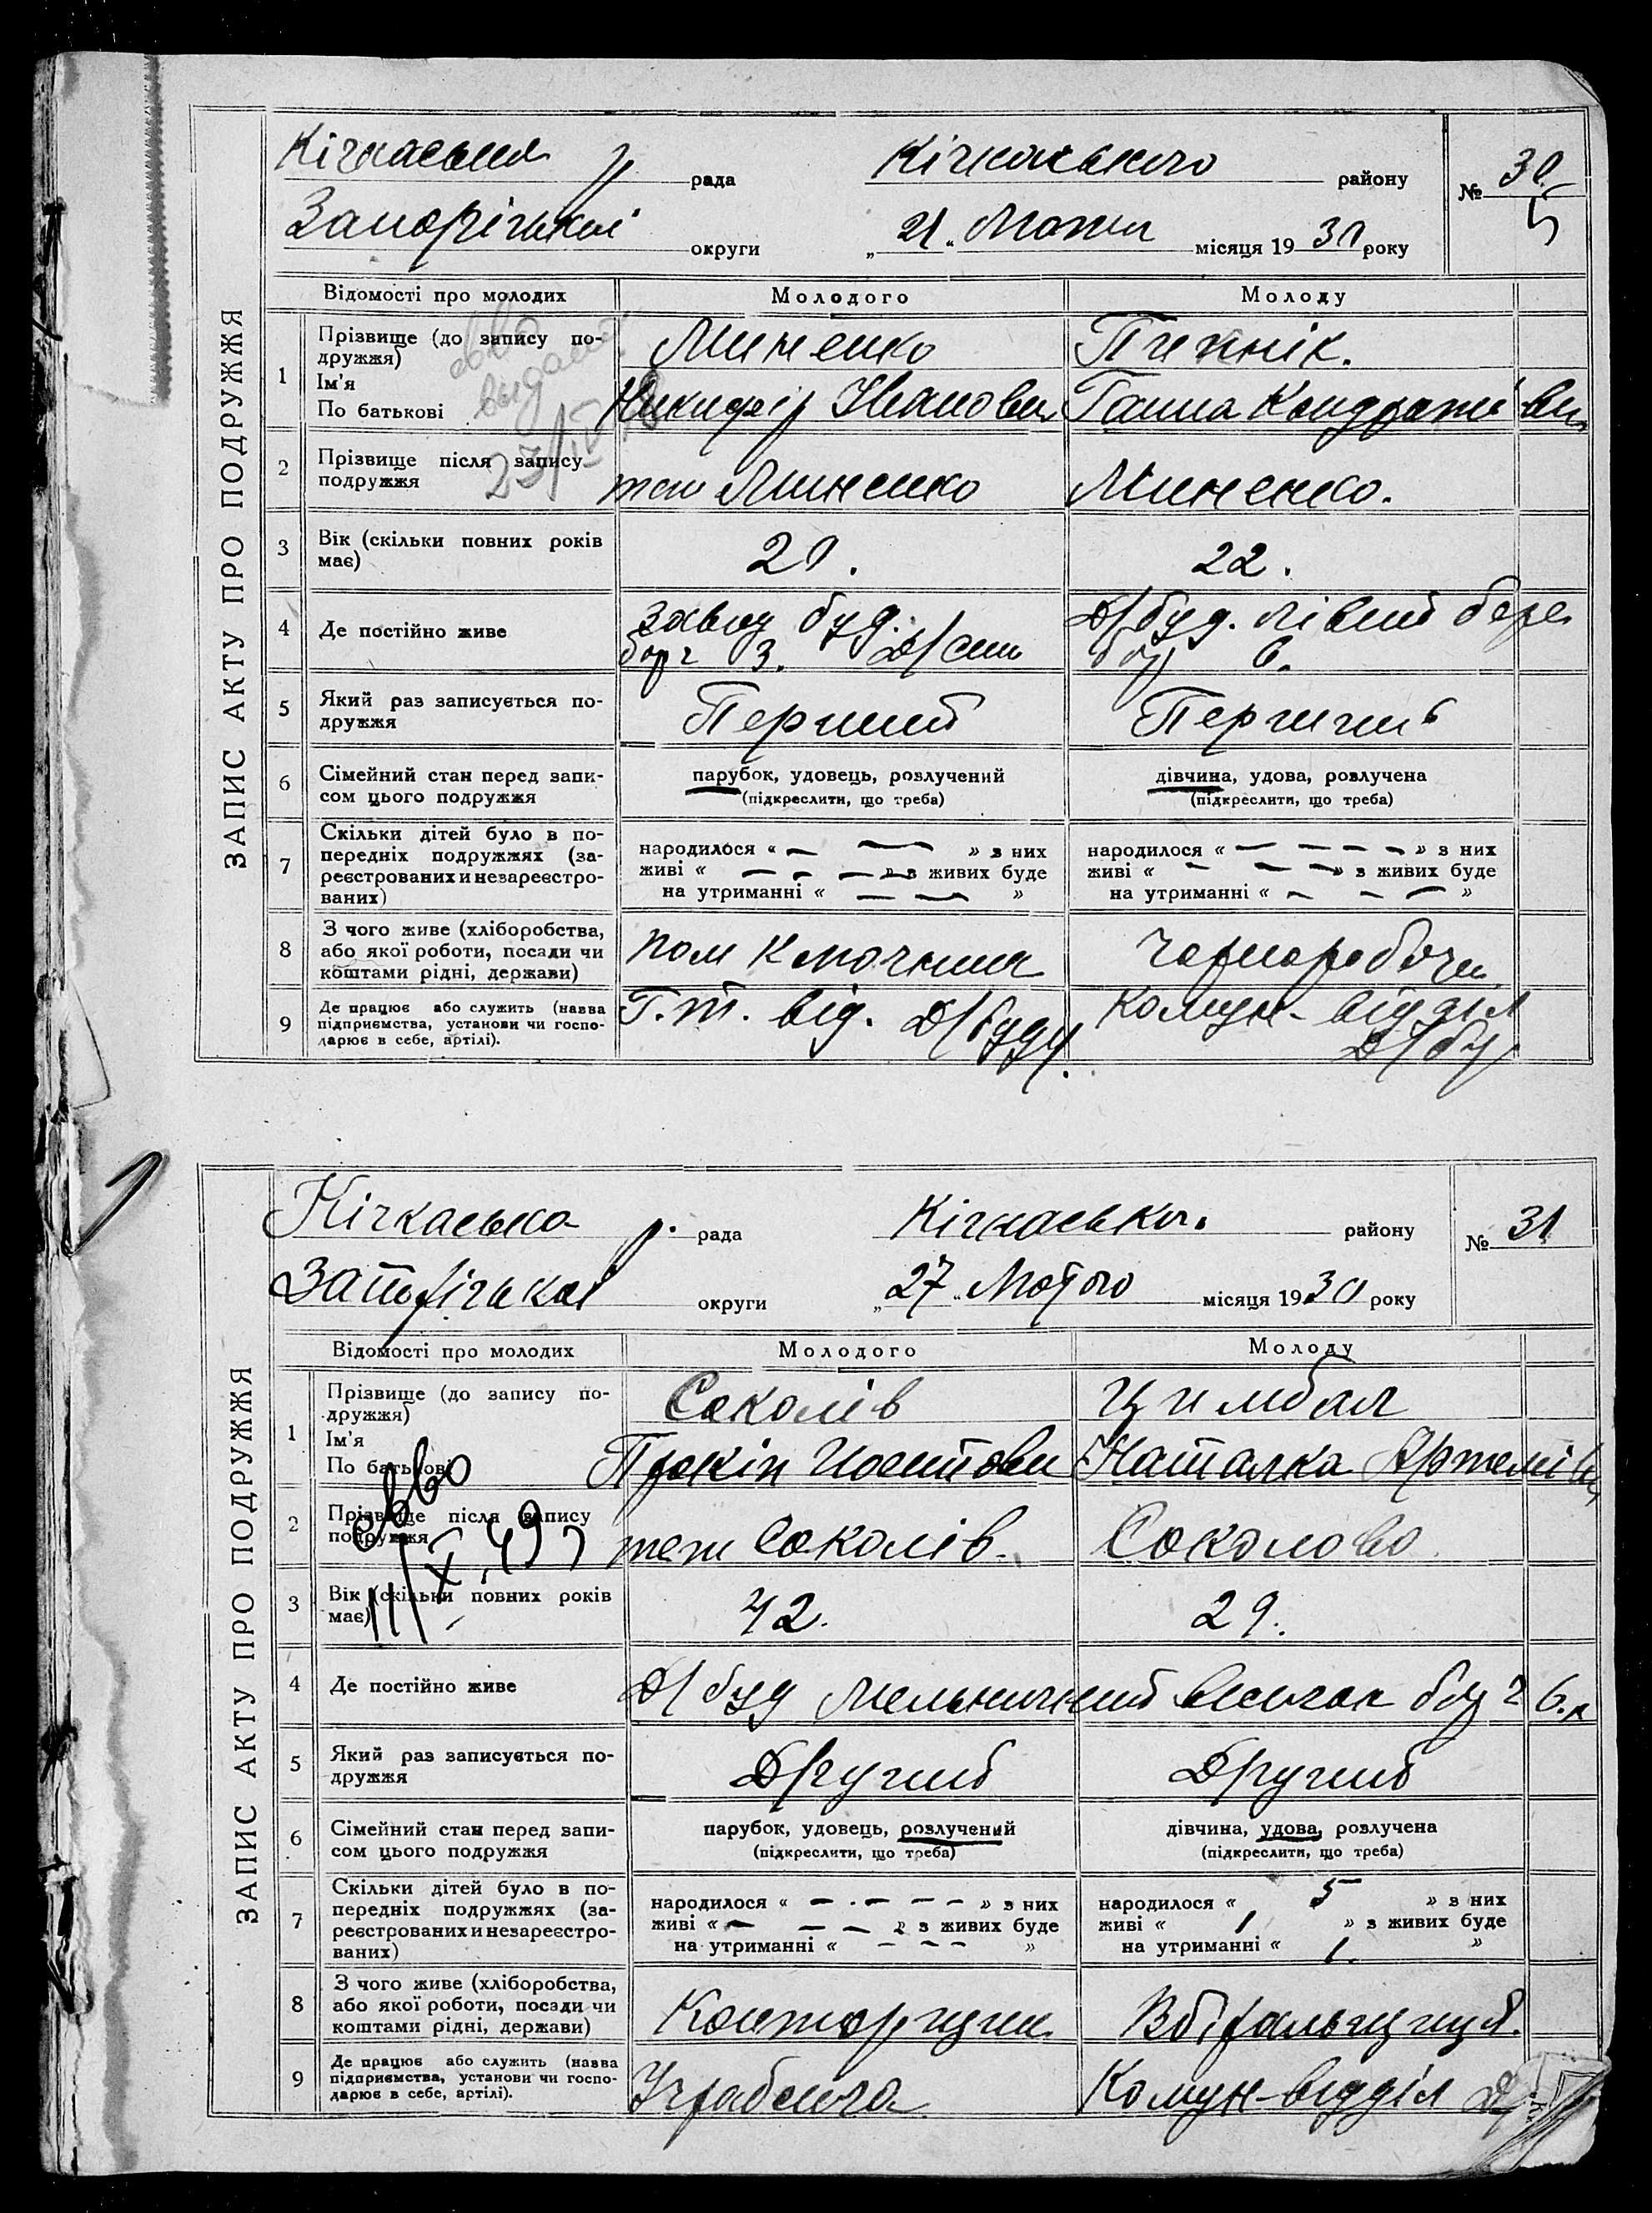 ЗАПИС АКТУ ПРО ПОДРУЖЖЯ
Кічкаська р рада Кічкаського району № 30
Запорізької округи „21“ місяця 1930 року
Відомості про молодих Молодого Молоду
1 Прізвище (до запису подружжя) Миненко Пижнік.
Ім'я
По батькові Никифір Іванович Ганна Кондратівна
2 Прізвище після запису подружжя теж Миненко Миненко.
3 Вік (скільки повних років має) 20. 22.
4 Де постійно живе буд. Д/буд. лівий берег
3. 6.
5 Який раз записується подружжя Перший Перший
6 Сімейний стан перед записом цього подружжя парубок, удовець, розлучений дівчина, удова, розлучена
(підкреслити, що треба) (підкреслити, що треба)
7 Скільки дітей було в попередніх подружжях (зареєстрованих и незареєстрованих) народилося « — — » з них народилося « — — — — » з них
живі « — — — » з живих буде живі « — — — » з живих буде
на утриманні « — — » на утриманні « — — — »
8 З чого живе (хліборобства, або якої роботи, посади чи коштами рідні, держави) пом ключника Чорноробоча
9 Де працює або служить (назва підприємства, установи чи господарює в себе, артілі). від. Д/буду. Комун-відділ
Д/бу
ЗАПИС АКТУ ПРО ПОДРУЖЖЯ
Кічкаська р. рада Кічкаськог. району № 31
Запорізької округи „27“ Лютого місяця 1930 року
Відомості про молодих Молодого Молоду
1 Прізвище (до запису подружжя) Соколів Цимбал
Ім'я
По батькові Прокіп Наталка Артемівна
2 Прізвище після запису подружжя теж Соколів. Соколова
3 Вік (скільки повних років має) 42. 29.
4 Де постійно живе Д/буд
5 Який раз записується подружжя Другий Другий
6 Сімейний стан перед записом цього подружжя парубок, удовець, розлучений дівчина, удова, розлучена
(підкреслити, що треба) (підкреслити, що треба)
7 Скільки дітей було в попередніх подружжях (зареєстрованих и незареєстрованих) народилося « — — — — » з них народилося « 5 » з них
живі « — — — » з живих буде живі « 1 » з живих буде
на утриманні « — — — » на утриманні « 1. »
8 З чого живе (хліборобства, або якої роботи, посади чи коштами рідні, держави) Конторщик Вбіральщиця.
9 Де працює або служить (назва підприємства, установи чи господарює в себе, артілі). Комун-відділ